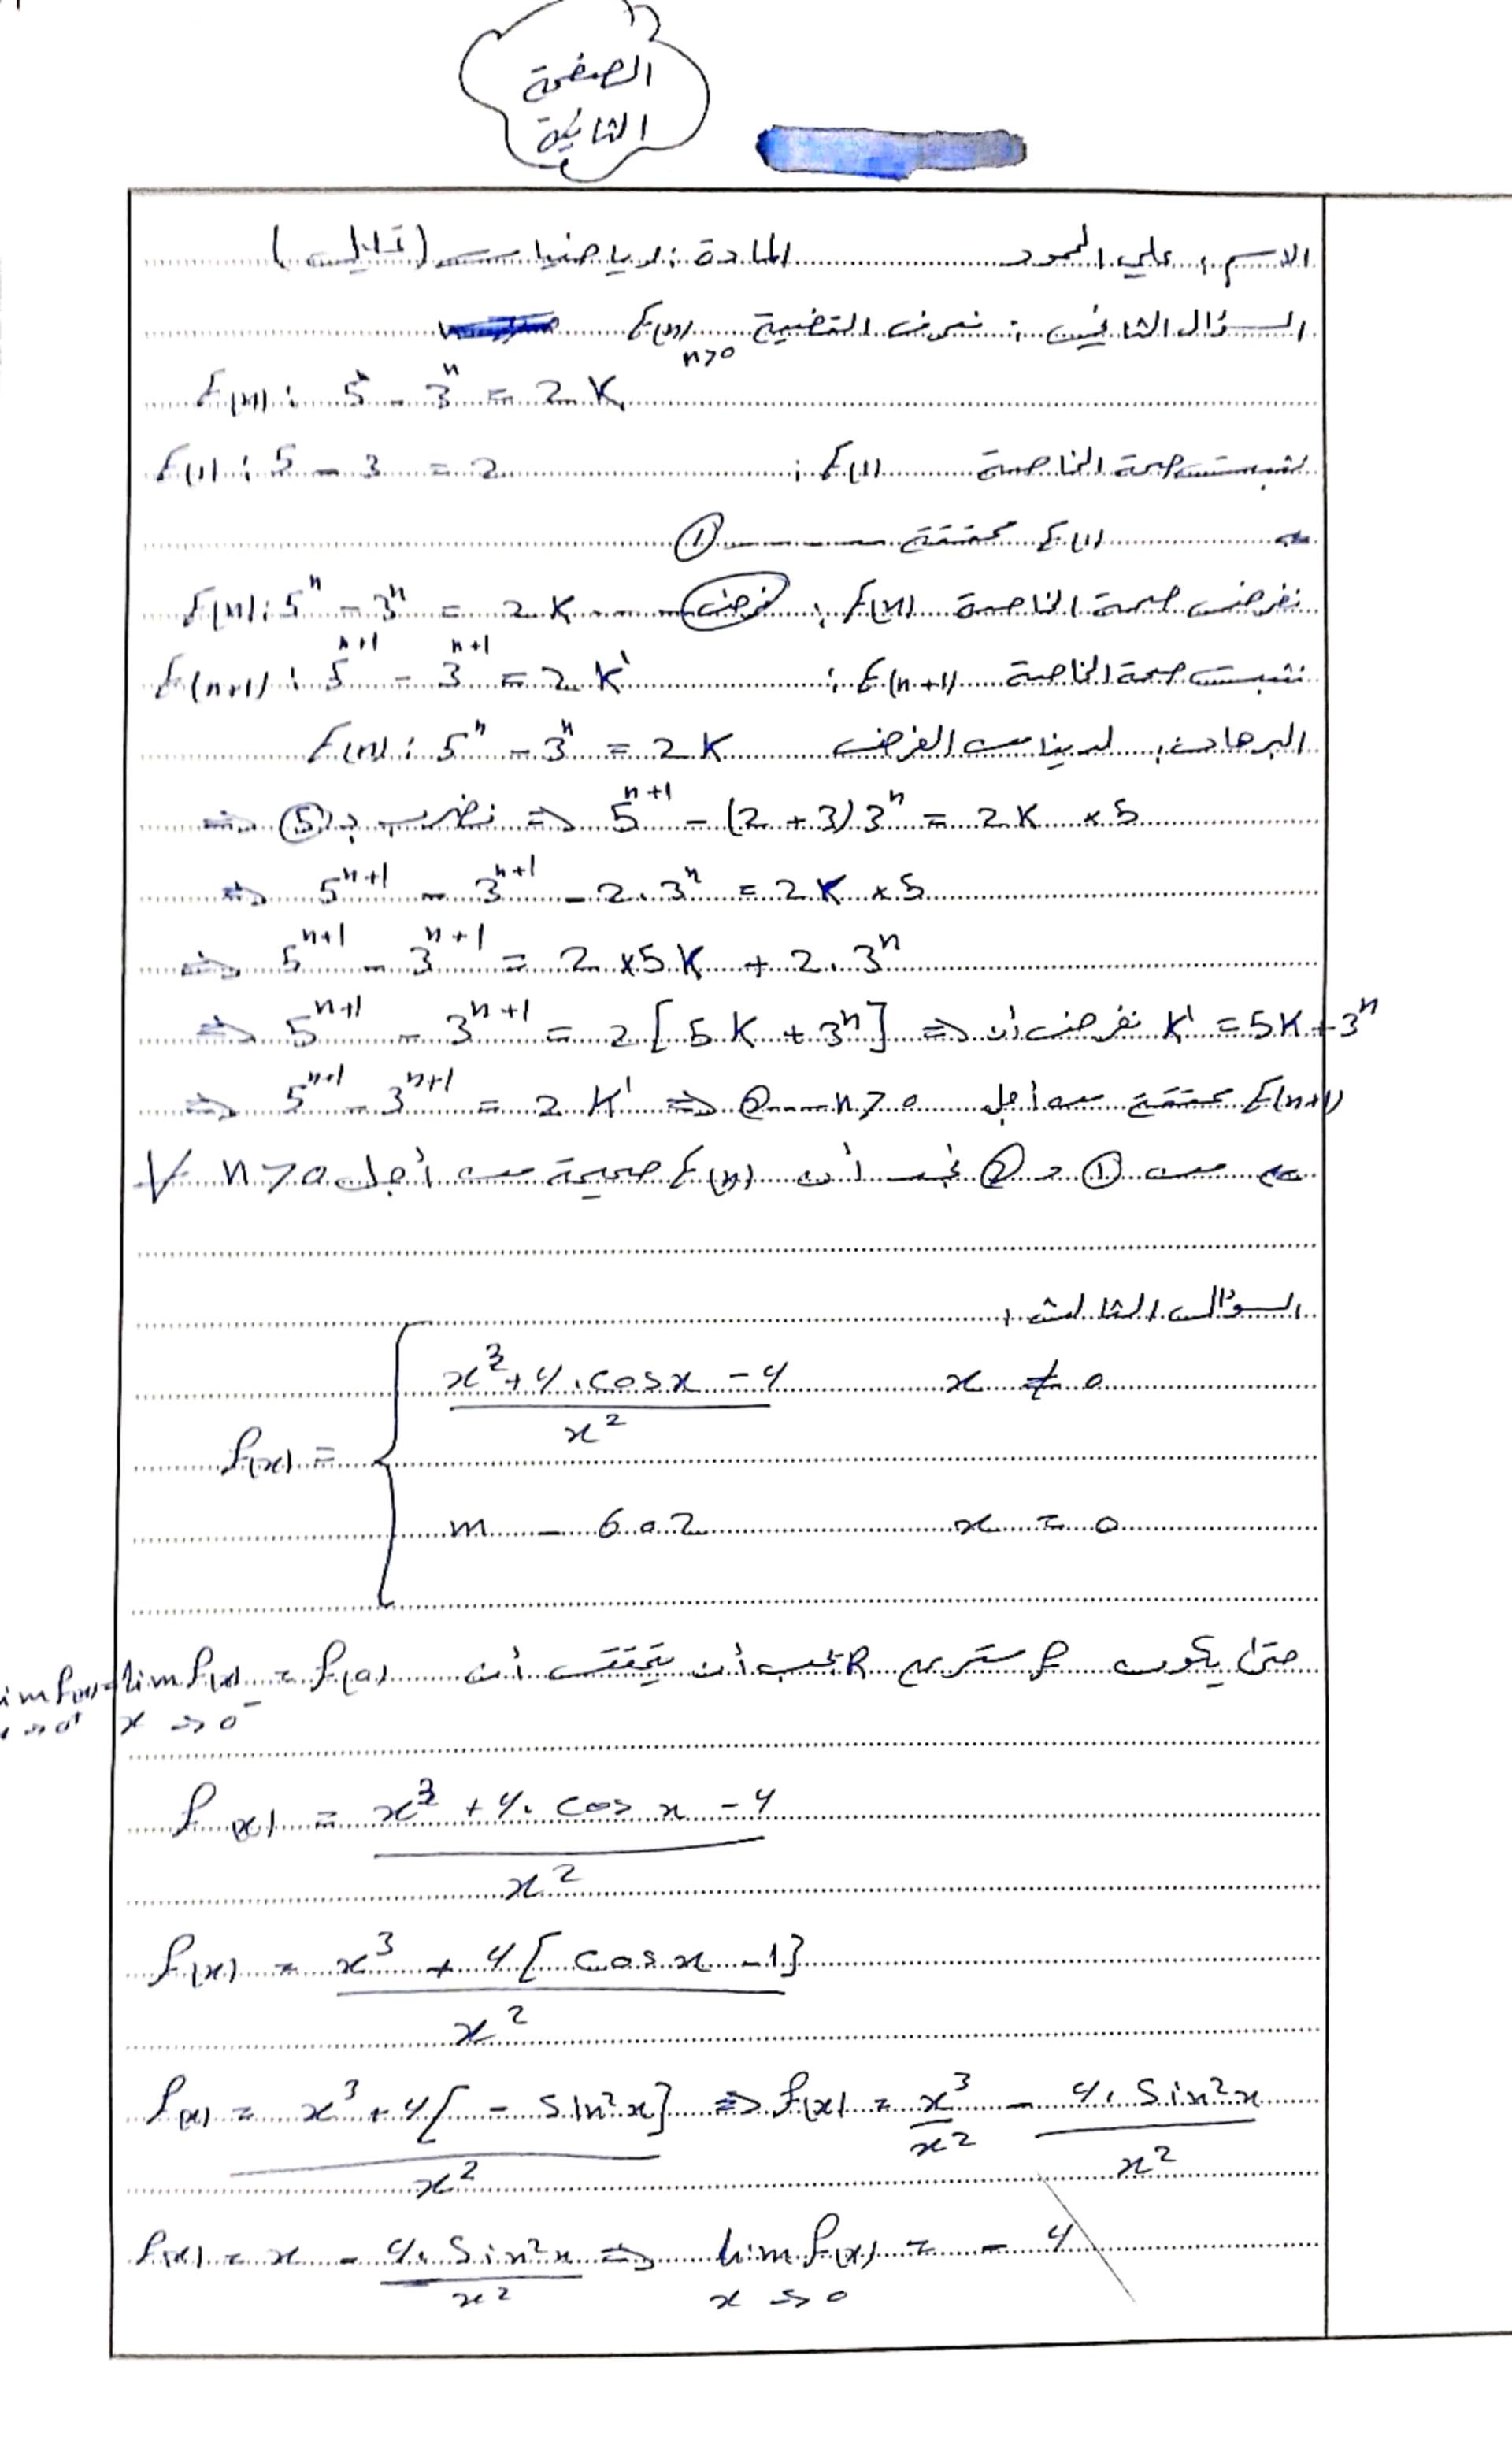 الصفحة
الثانية
الاسم: علي المحمود المادة: رياضيات (تحليل)
السؤال الثاني: نعرف القضية E(n) n>0
E(n): 5ⁿ - 3ⁿ = 2K
نثبت صحة الخاصة E(1): E(1): 5 - 3 = 2
E(1) محققة ——— ①
نفرض صحة الخاصة E(n): فرض --- E(n): 5ⁿ - 3ⁿ = 2K
نثبت صحة الخاصة E(n+1): E(n+1): 5ⁿ⁺¹ - 3ⁿ⁺¹ = 2K'
البرهان: لدينا من الفرض E(n): 5ⁿ - 3ⁿ = 2K
⇒ نضرب بـ (5) ⇒ 5ⁿ⁺¹ - (2+3)3ⁿ = 2K × 5
⇒ 5ⁿ⁺¹ - 3ⁿ⁺¹ - 2.3ⁿ = 2K × 5
⇒ 5ⁿ⁺¹ - 3ⁿ⁺¹ = 2 × 5K + 2.3ⁿ
⇒ 5ⁿ⁺¹ - 3ⁿ⁺¹ = 2[5K + 3ⁿ] ⇒ نفرض أن K' = 5K + 3ⁿ
⇒ 5ⁿ⁺¹ - 3ⁿ⁺¹ = 2K' ⇒ E(n+1) محققة من أجل n>0 --- ②
من ① و ② نجد أن E(n) صحيحة من أجل ∀ n>0
السؤال الثالث:
f(x) =
x³+4.cosx-4 / x² x ≠ 0
m - 602 x = 0
حتى يكون f مستمر يجب أن يتحقق أن lim f(x) = lim f(x) = f(0)
x→0⁺ x→0⁻
f(x) = x³ + 4.cos x - 4 / x²
f(x) = x³ + 4[cosx - 1] / x²
f(x) = x³ + 4[- sin²x] / x² ⇒ f(x) = x³/x² - 4.sin²x / x²
f(x) = x - 4.sin²x / x² ⇒ lim f(x) = - 4
x→0